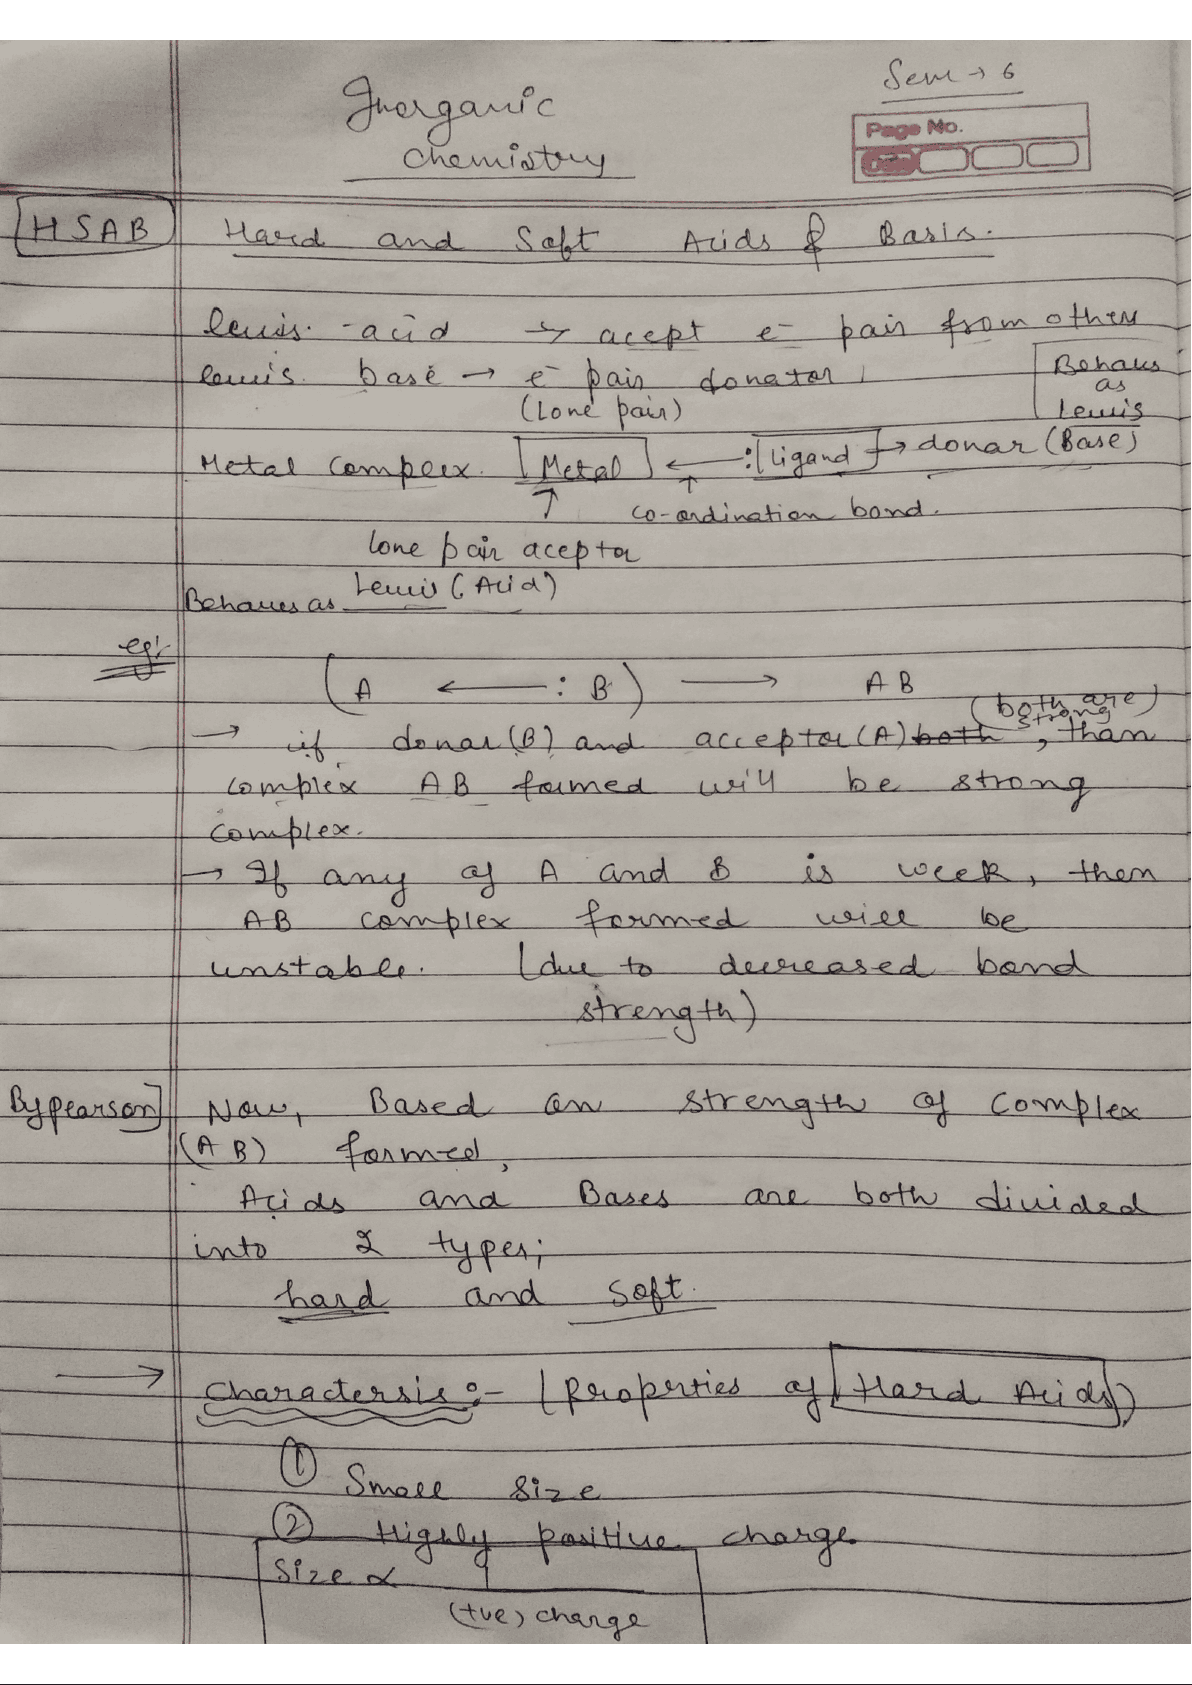 Sem → 6
Inorganic
chemistry
Page No.
HSAB
Hard and Soft Acids & Basis.
lewis. -acid → acept e- pair from others
lewis. base → e- pair donator
(Lone pair)
Behaves
as
Lewis
Metal compelx. [Metal] ← :[Ligand] → donar (Base)
↑ ↑ co-ordination bond.
lone pair aceptor
Behaves as Lewis (Acid)
eg:-
(A ← : B) → AB
(both are)
strong
→ if donar (B) and acceptor (A) both, than
complex AB formed will be strong
complex.
→ If any of A and B is week, then
AB complex formed will be
unstable. (due to decreased bond
strength)
By pearson] Now, Based on strength of complex
(AB) formed,
Acids and Bases are both divided
into 2 types;
hard and soft.
→ Charactersis :- (Properties of Hard Acids)
① Small size
② Highly positive charge
Size ∝ 1
(+ve) charge